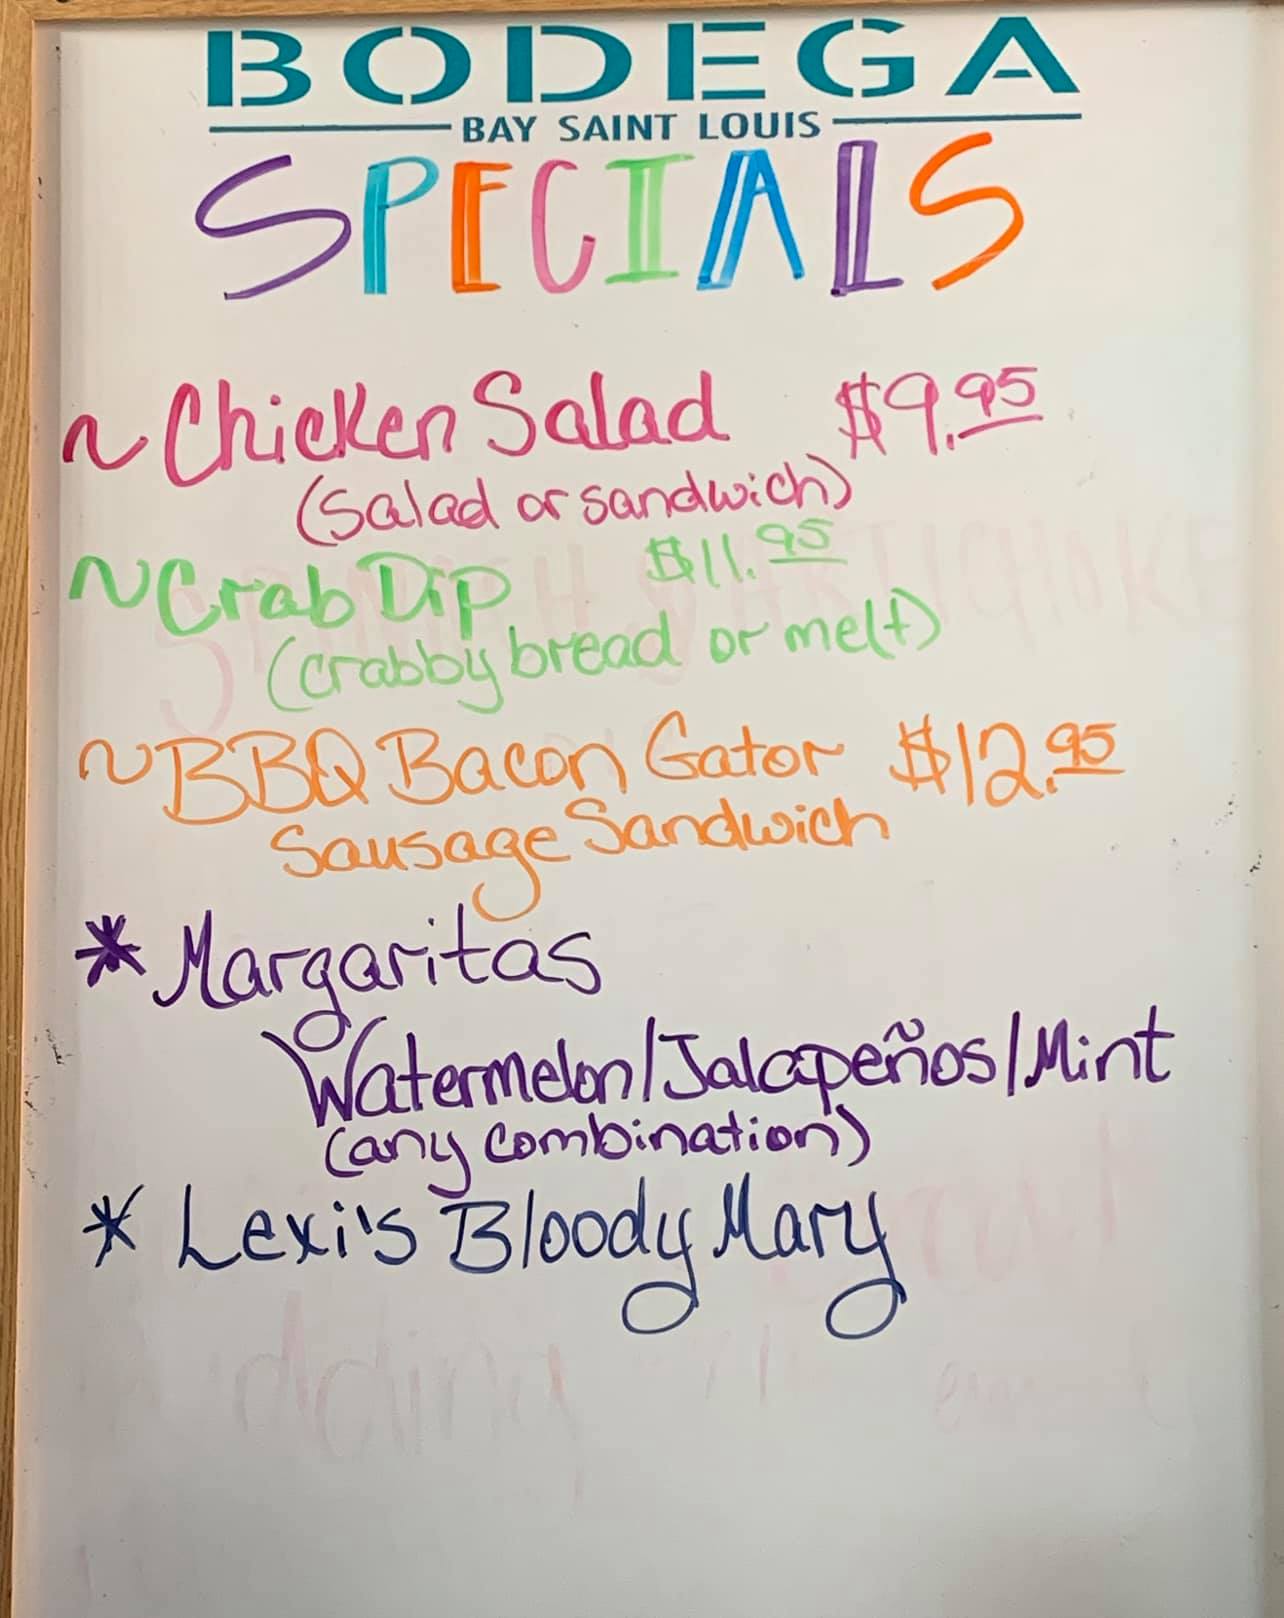 BODEGA
BAY SAINT LOUIS
SPECIALS
~ Chicken Salad $9.95
(Salad or sandwich)
~ Crab Dip $11.95
(crabby bread or melt)
~ BBQ Bacon Gator $12.95
Sausage Sandwich
* Margaritas
Watermelon/Jalapeños/Mint
(any combination)
* Lexi's Bloody Mary